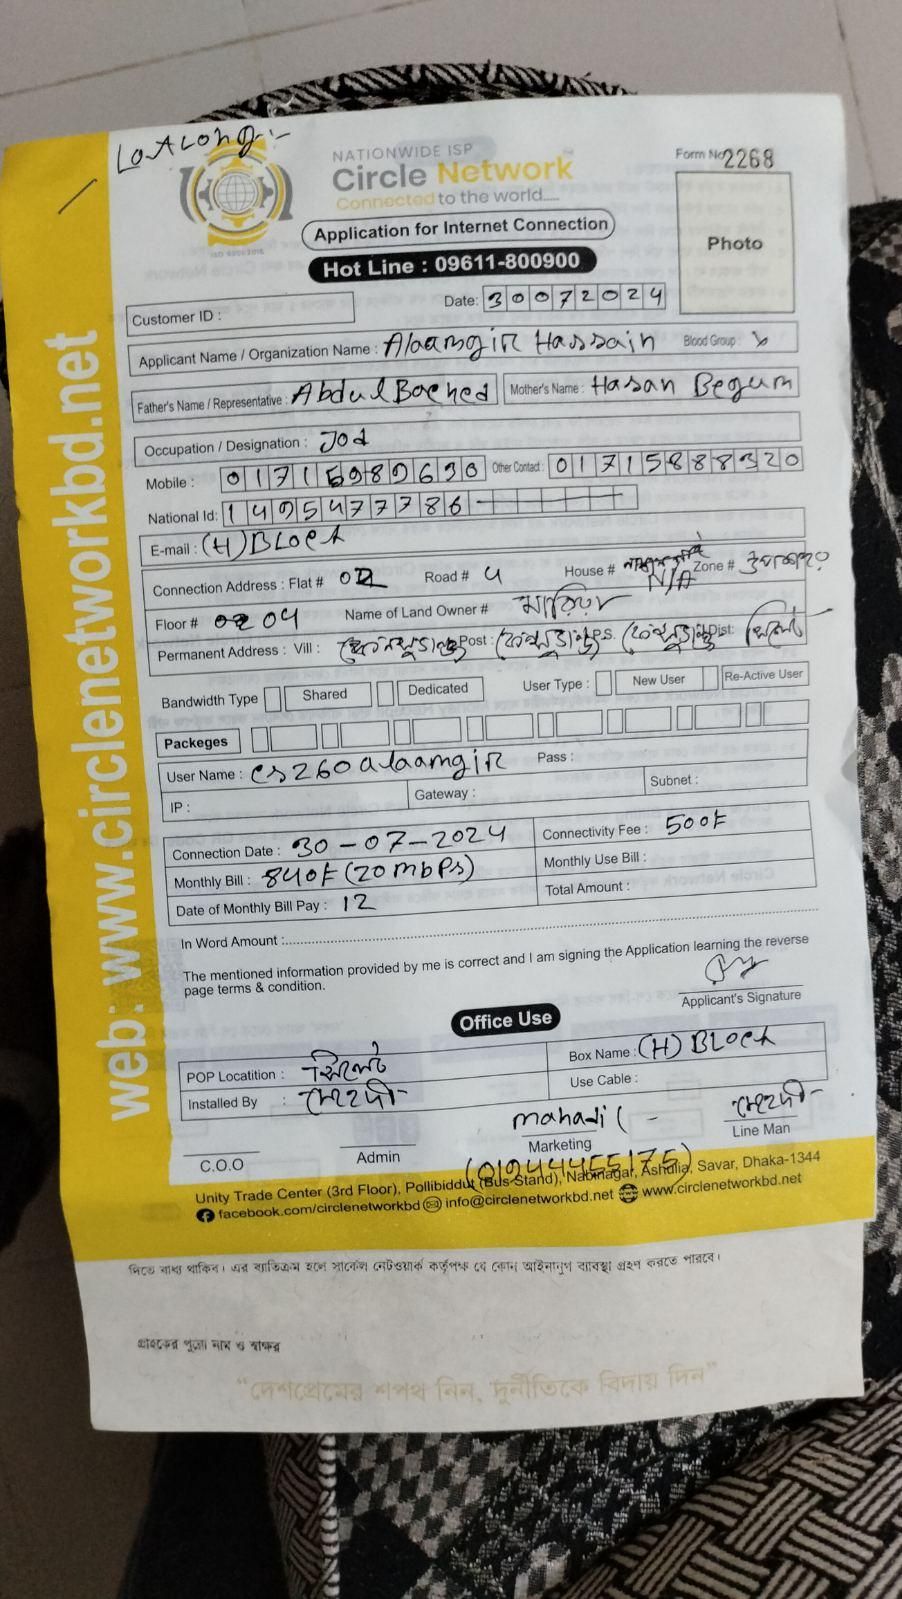 NATIONWIDE ISP
Circle Network
Connected to the world.....
Form No 2268
Application for Internet Connection
Photo
Hot Line : 09611-800900
Date: 30072024
Customer ID :
Applicant Name / Organization Name : Alaamgir Hassain Blood Group :
Father's Name / Representative : Abdul Mother's Name : Hasan Begum
Occupation / Designation : Job
Mobile : Other Contact : 01715888320
National Id: 1495477786
E-mail : (H) Block
Connection Address : Flat # 02 Road # 4 House # N/A Zone #
Floor # 04 Name of Land Owner #
Permanent Address : Vill : Post : P.S. Dist: সিলেট
Bandwidth Type Shared Dedicated User Type : New User Re-Active User
Packeges
User Name : cs260alaamgir Pass :
IP : Gateway : Subnet :
Connection Date : 30-07-2024 Connectivity Fee : 500৳
Monthly Bill : 840৳ (20mbps) Monthly Use Bill :
Date of Monthly Bill Pay : 12 Total Amount :
In Word Amount :
The mentioned information provided by me is correct and I am signing the Application learning the reverse
page terms & condition.
Applicant's Signature
Office Use
POP Locatition : সিলেট Box Name : (H) Block
Installed By : মেহেদী Use Cable :
mahadi মেহেদী
C.O.O Admin Marketing Line Man
(01944455175)
Unity Trade Center (3rd Floor), Pollibiddut (Bus-Stand), Nabinagar, Ashulia, Savar, Dhaka-1344
facebook.com/circlenetworkbd info@circlenetworkbd.net www.circlenetworkbd.net
web: www.circlenetworkbd.net
দিতে বাধ্য থাকিব। এর ব্যতিক্রম হলে সার্কেল নেটওয়ার্ক কর্তৃপক্ষ যে কোন আইনানুগ ব্যবস্থা গ্রহণ করতে পারবে।
গ্রাহকের পুরো নাম ও স্বাক্ষর
"দেশপ্রেমের শপথ নিন, দুর্নীতিকে বিদায় দিন"